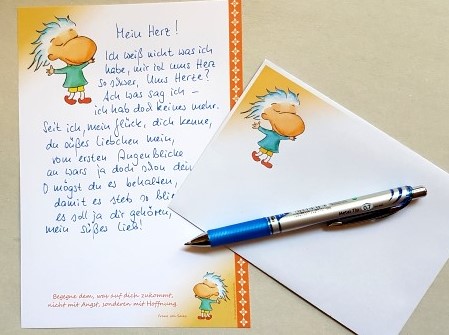 Mein Herz!
Ich weiß nicht was ich
habe, mir ist ums Herz
so schwer. Ums Herze?
Ach was sag ich –
ich hab doch keines mehr.
Seit ich, mein Glück, dich kenne,
du süßes Liebchen mein,
vom ersten Augenblicke
an wars ja doch schon dein
O mögst du es behalten,
damit es stets so blie
es soll ja dir gehören,
mein süßes Lieb!
Begegne dem, was auf dich zukommt,
nicht mit Angst, sondern mit Hoffnung.